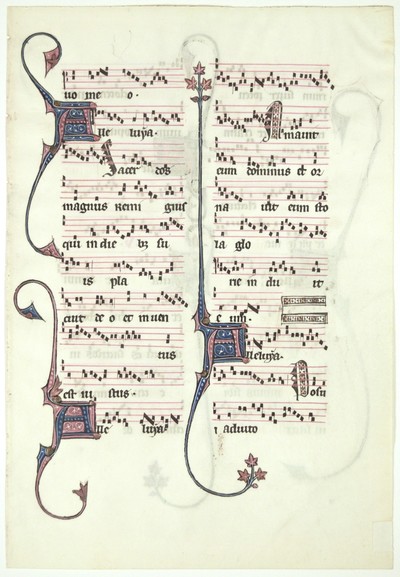 uo me o.
Alle luya.
Sacer dos
magnus Remi gius
qui in die bz su
is pla
cuit de o et inuen
tus
est iu stus.
Alle luya.
Amauit
eum dominus et or
na uit eum sto
la glo
rie in du it
e um.
Alleluya.
Posu
i adiuto